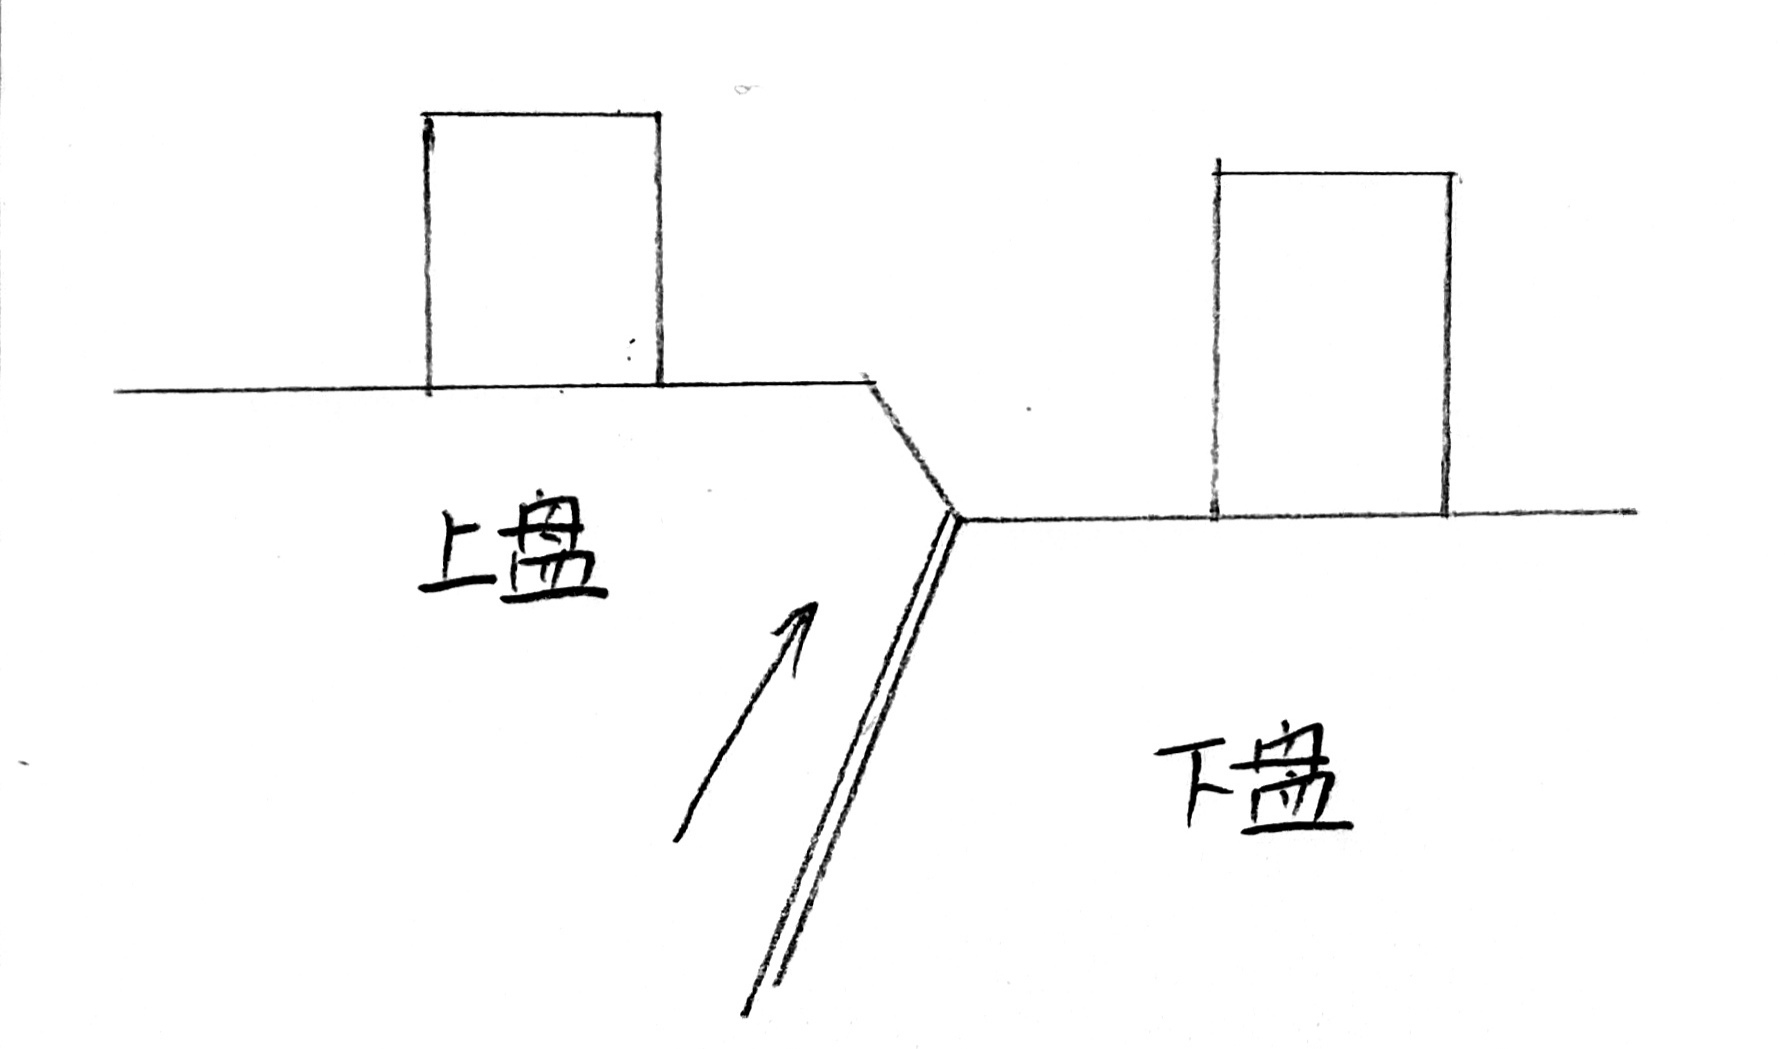 上盘
下盘